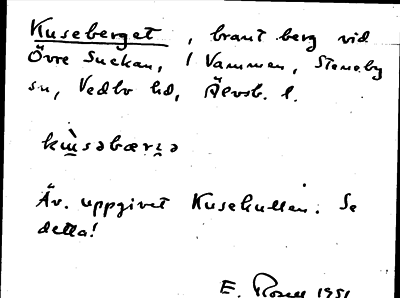 Kuseberget, brant berg vid
Övre Suckan, i Vammen, Steneby
sn, Vedbo hd, Älvsb. l.
kùsəbærɪə
Äv. uppgivet Kusekullen. Se
detta!
E. Rosell 1951